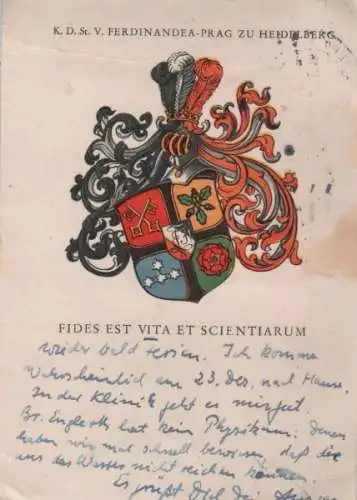 K. D. St. V. FERDINANDEA-PRAG ZU HEIDELBERG
FIDES EST VITA ET SCIENTIARUM
wieder bald Ferien. Ich komme
Wahrscheinlich am 23. Dez. nach Hause.
In der Klinik geht es mir gut.
Br. hat kein Physikum. Denen
haben wir mal schnell bewiesen, daß die
uns das Wasser nicht reichen können.
Es grüßt Dich